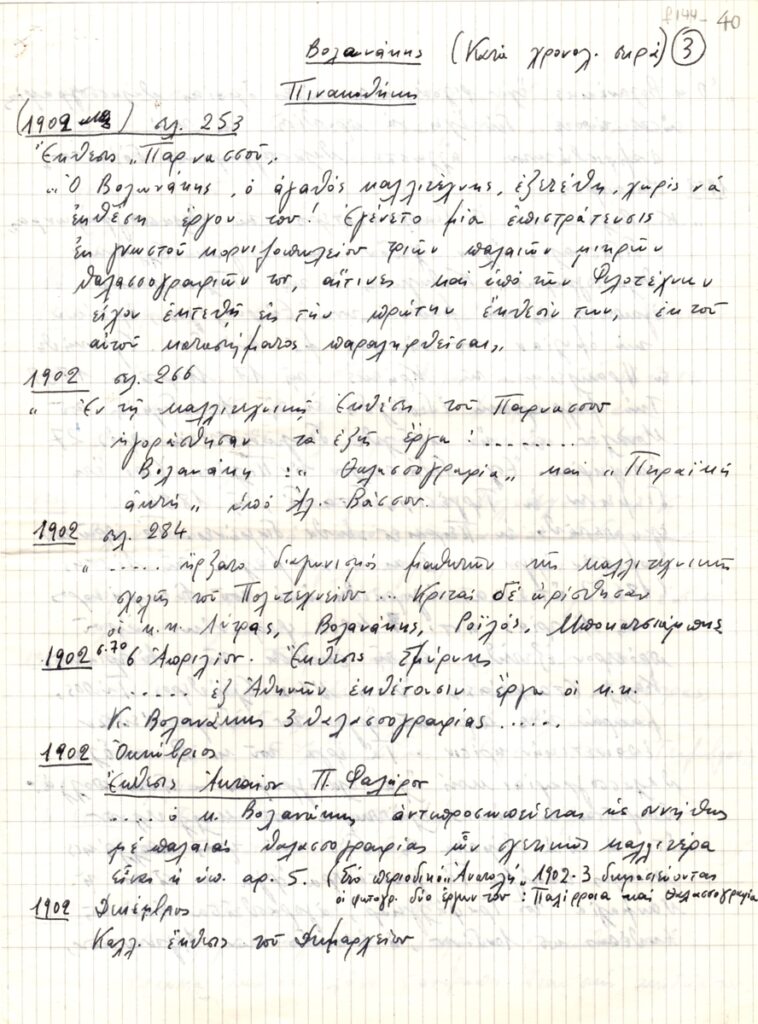 f144- 40
Βολανάκης (Κατά χρονολ. σειρά) 3
Πινακοθήκης
(1902) σελ. 253
Ἔκθεσις „Παρνασσοῦ„
„Ὁ Βολωνάκης, ὁ ἀγαθὸς καλλιτέχνης, ἐξετέθη, χωρὶς νὰ
ἐκθέσῃ ἔργον του! Ἐγένετο μία ἐπιστράτευσις
ἐκ γνωστοῦ κορνιζοπωλείου τριῶν παλαιῶν μικρῶν
θαλασσογραφιῶν του, αἵτινες καὶ ὑπὸ τῶν Φιλοτέχνων
εἶχον ἐκτεθῆ εἰς τὴν πρώτην ἔκθεσίν των, ἐκ τοῦ
αὐτοῦ καταστήματος παραληφθεῖσαι„
1902 σελ. 266
„ Ἐν τῇ καλλιτεχνικῇ Ἐκθέσει τοῦ Παρνασσοῦ
ἠγοράσθησαν τὰ ἑξῆς ἔργα: ........
Βολανάκη: „ Θαλασσογραφία„ καὶ „Πειραϊκή
ἀκτή„ ὑπὸ Ἀλ. Βάσσου.
1902 σελ. 284
„ ..... ἤρξατο διαγωνισμὸς μαθητῶν τῆς καλλιτεχνικῆς
σχολῆς τοῦ Πολυτεχνείου ... Κριταὶ δὲ ὡρίσθησαν
οἱ κ.κ. Λύτρας, Βολανάκης, Ροϊλός, Μποκατσιάμπης
1902 σ.70 6 Ἀπριλίου. Ἔκθεσις Σμύρνης
..... ἐξ Ἀθηνῶν ἐκθέτουσιν ἔργα οἱ κ.κ.
Κ. Βολανάκης 3 θαλασσογραφίας .....
1902 Ὀκτώβριος
Ἔκθεσις Ἀκταίου Π. Φαλήρου
.... ὁ κ. Βολανάκης ἀντιπροσωπεύεται ὡς συνήθως
μὲ παλαιὰς θαλασσογραφίας ὧν σχετικῶς καλλιτέρα
εἶναι ἡ ὑπ. αρ. 5. (Στὸ περιοδικὸ „Ἀνατολή„ 1902-3 δημοσιεύονται
οἱ φωτογρ. δύο ἔργων του: Παλίρροια καὶ Θαλασσογραφία
1902 Δεκέμβριος
Καλλ. ἔκθεσις τοῦ Δημαρχείου